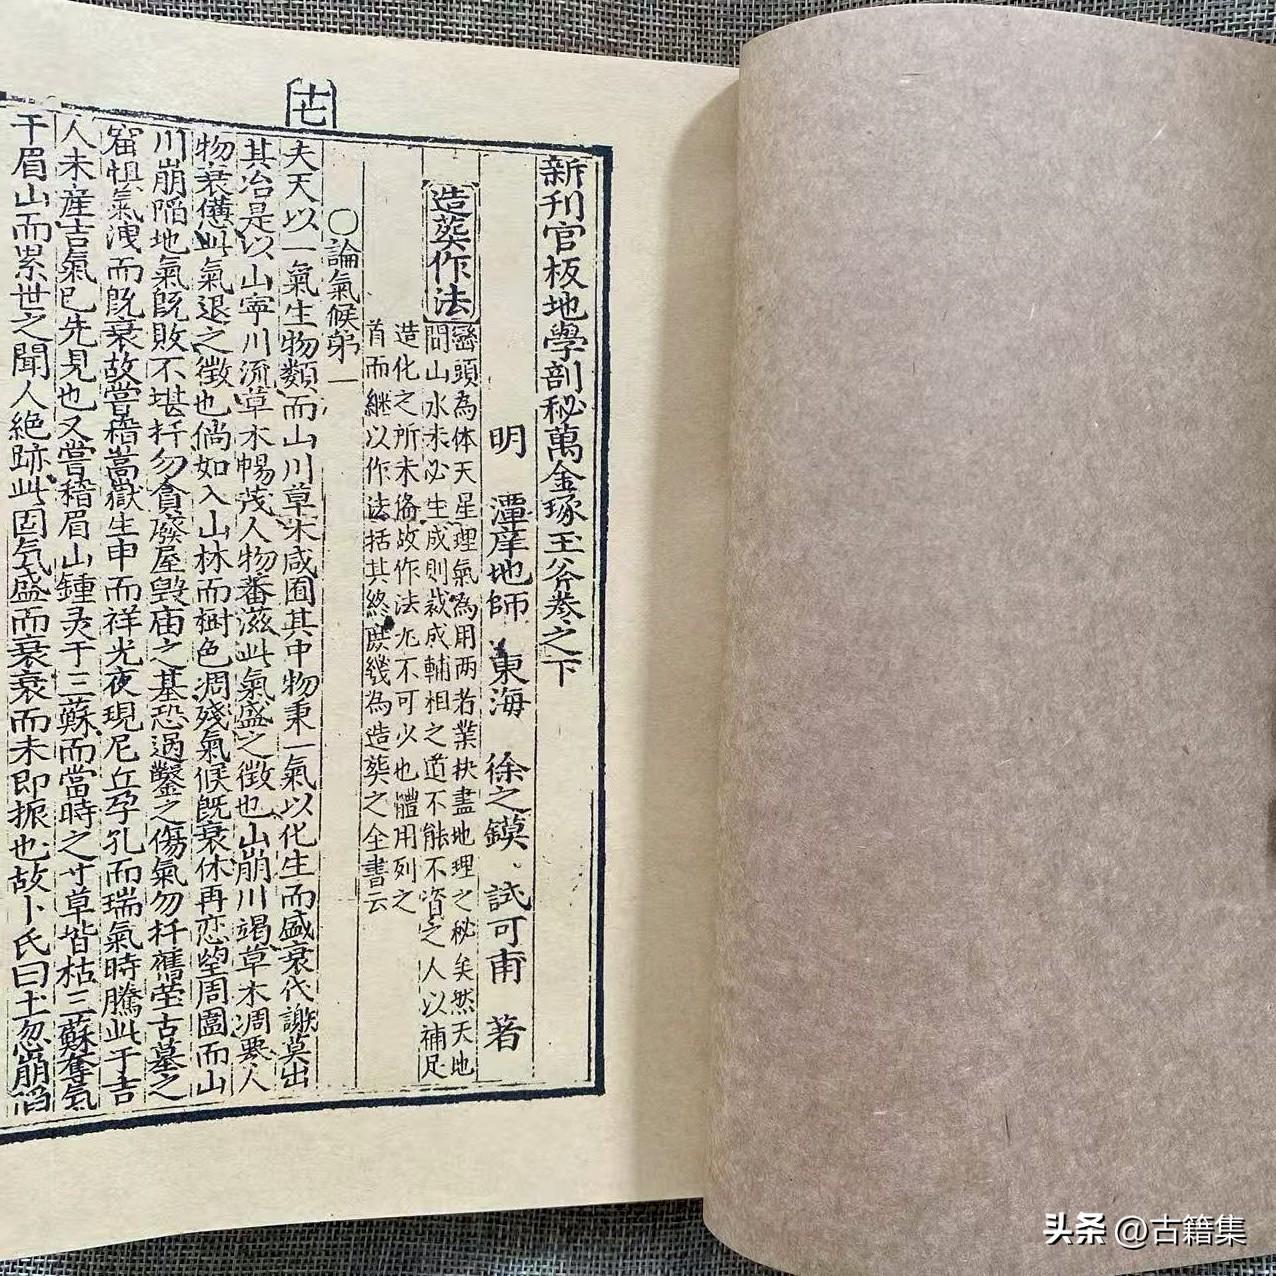 十七
新刊官板地學剖秘萬金琢玉斧卷之下
明 潭庠地師 東海 徐之鏌 試可甫 著
造葬作法
巒頭為体天星理氣為用两者業抉盡地理之秘矣然天地
間山水未必生成則裁成輔相之道不能不資之人以補足
造化之所未俻故作法尤不可少也體用列之
首而継以作法括其終庶幾為造葬之全書云
〇論氣候第一
夫天以一氣生物類而山川草木咸囿其中物秉一氣以化生而盛衰代謝莫出
其冶是以山寧川流草木暢茂人物蕃滋此氣盛之徴也山崩川竭草木凋零人
物衰憊此氣退之徴也倘如入山林而樹色凋殘氣候旣衰休再恋塋周圍而山
川崩陷地氣旣敗不堪扦勿貪廢屋毁庙之基恐遇鑿之傷氣勿扦舊塋古墓之
窟惧氣洩而旣衰故嘗稽嵩嶽生申而祥光夜現尼丘孕孔而瑞氣時騰此于吉
人未産吉氣已先見也又嘗稽眉山鍾灵于三蘇而當時之寸草皆枯三蘇奪氣
于眉山而累世之聞人絶跡此固气盛而衰衰而未即振也故卜氏曰土忽崩陷
头条 @古籍集